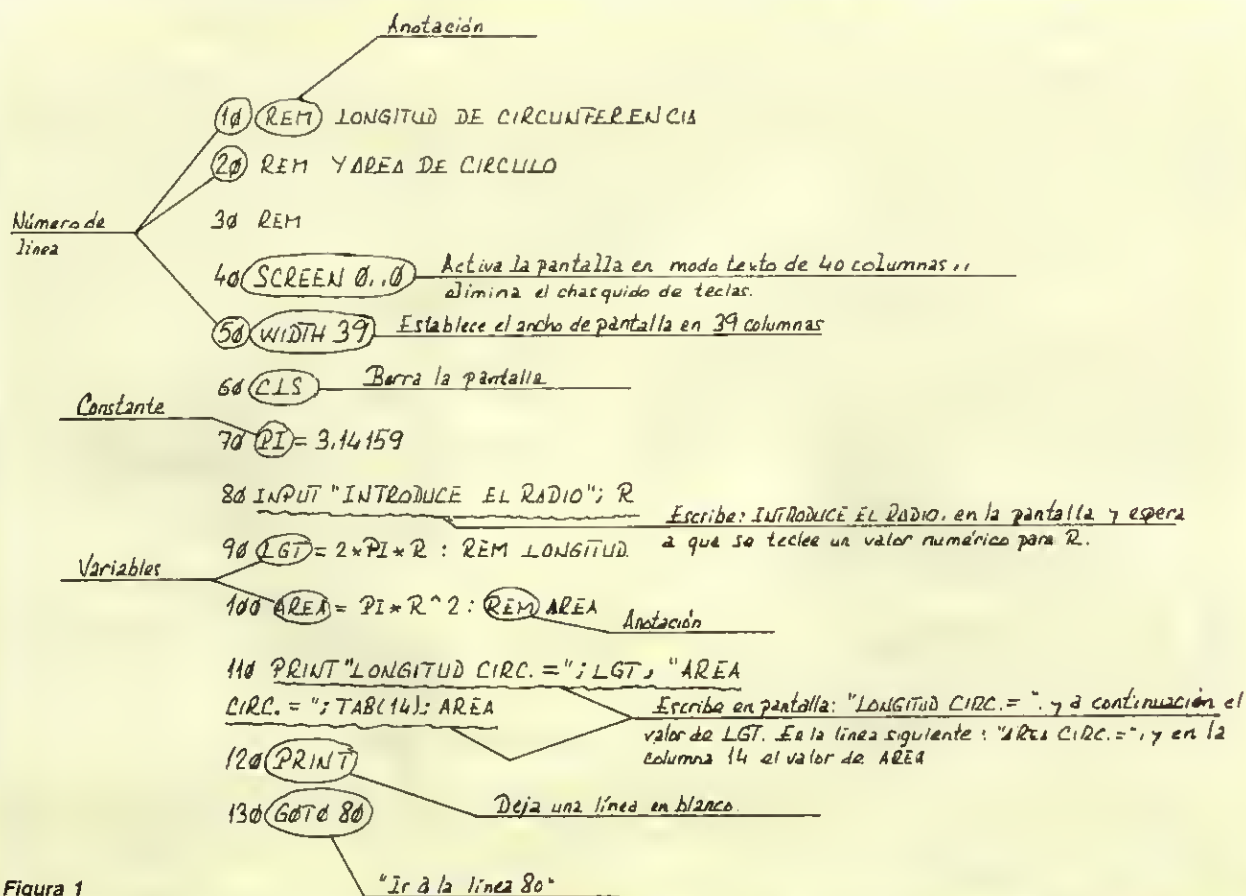 Anotación
10 REM LONGITUD DE CIRCUNFERENCIA
20 REM Y AREA DE CIRCULO
Número de
línea
30 REM
40 SCREEN 0,,0
Activa la pantalla en modo texto de 40 columnas,,
elimina el chasquido de teclas.
50 WIDTH 39
Establece el ancho de pantalla en 39 columnas
60 CLS
Borra la pantalla
Constante
70 PI = 3.14159
80 INPUT "INTRODUCE EL RADIO"; R
Escribe: INTRODUCE EL RADIO, en la pantalla y espera
a que se teclee un valor numérico para R.
90 LGT = 2*PI*R : REM LONGITUD
Variables
100 AREA = PI*R^2 : REM AREA
Anotación
110 PRINT "LONGITUD CIRC. ="; LGT, "AREA
CIRC. = "; TAB(14); AREA
Escribe en pantalla: "LONGITUD CIRC.= ". y a continuación el
valor de LGT. En la línea siguiente: "AREA CIRC.=", y en la
columna 14 el valor de AREA
120 PRINT
Deja una línea en blanco.
130 GOTO 80
"Ir a la línea 80"
Figura 1